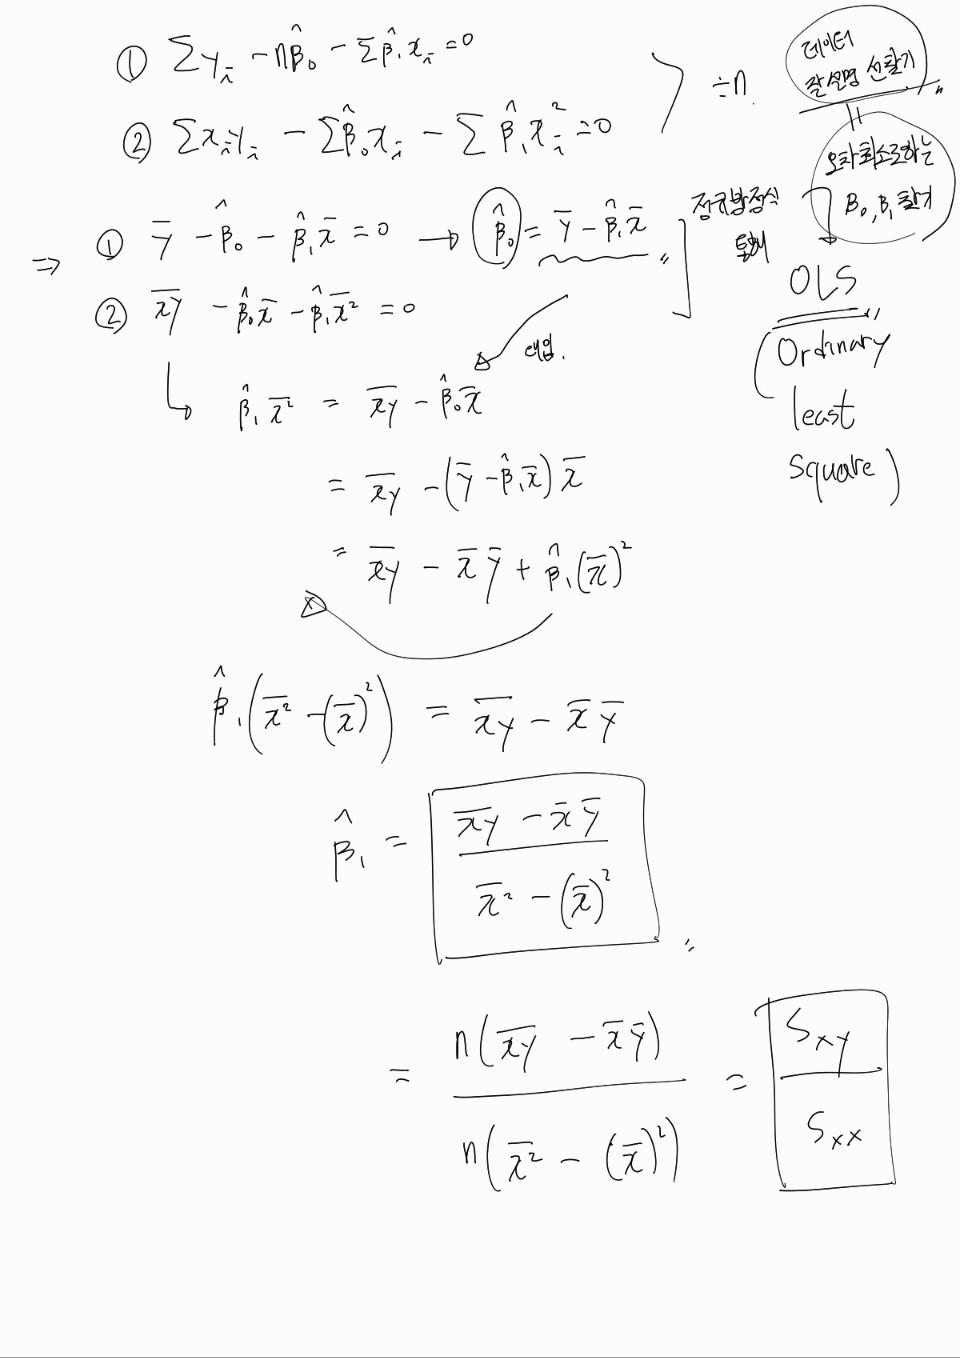 ① ∑yᵢ - nβ̂₀ - ∑β̂₁xᵢ = 0
② ∑xᵢyᵢ - ∑β̂₀xᵢ - ∑β̂₁xᵢ² = 0
÷n.
데이터
잘 설명 선 찾기
〃
오차 최소로하는
β₀, β₁ 찾기
⇒ ① ȳ - β̂₀ - β̂₁x̄ = 0 → β̂₀ = ȳ - β̂₁x̄ 〃
② x̄ȳ - β̂₀x̄ - β̂₁x̄² = 0
정규방정식
OLS 〃
(Ordinary
least
square)
대입.
β̂₁ x̄² = x̄ȳ - β̂₀x̄
= x̄ȳ - (ȳ - β̂₁x̄) x̄
= x̄ȳ - x̄ ȳ + β̂₁(x̄)²
β̂₁(x̄² - (x̄)²) = x̄ȳ - x̄ ȳ
β̂₁ = (x̄ȳ - x̄ ȳ) / (x̄² - (x̄)²) 〃
= n(x̄ȳ - x̄ ȳ) / n(x̄² - (x̄)²) = Sxy / Sxx